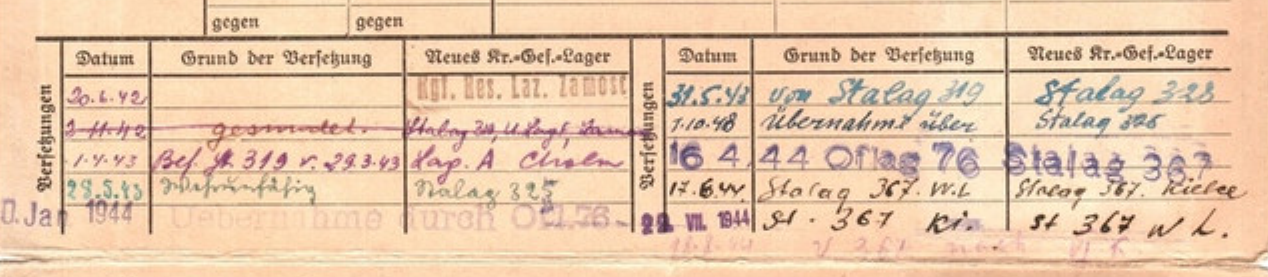 gegen gegen
Versetzungen Datum Grund der Versetzung Neues Kr.-Gef.-Lager
20.6.42 Kgf. Res. Laz. Zamost
2-11-42 Stalag
1.4.43 Bef. 319 v. 29.3.43 Lag. A Cholm
28.5.43 Stalag 325
0. Jan. 1944 Uebernahme durch Ofl. 76.
Versetzungen Datum Grund der Versetzung Neues Kr.-Gef.-Lager
31.5.43 von Stalag 319 Stalag 328
1.10.43 Übernahme über Stalag 325
16 4.44 Oflag 76 Stalag 367
17.6.44. Stalag 367. W.L Stalag 367. Kielce
VII. 1944 St. 367 Ki. St 367 W L.